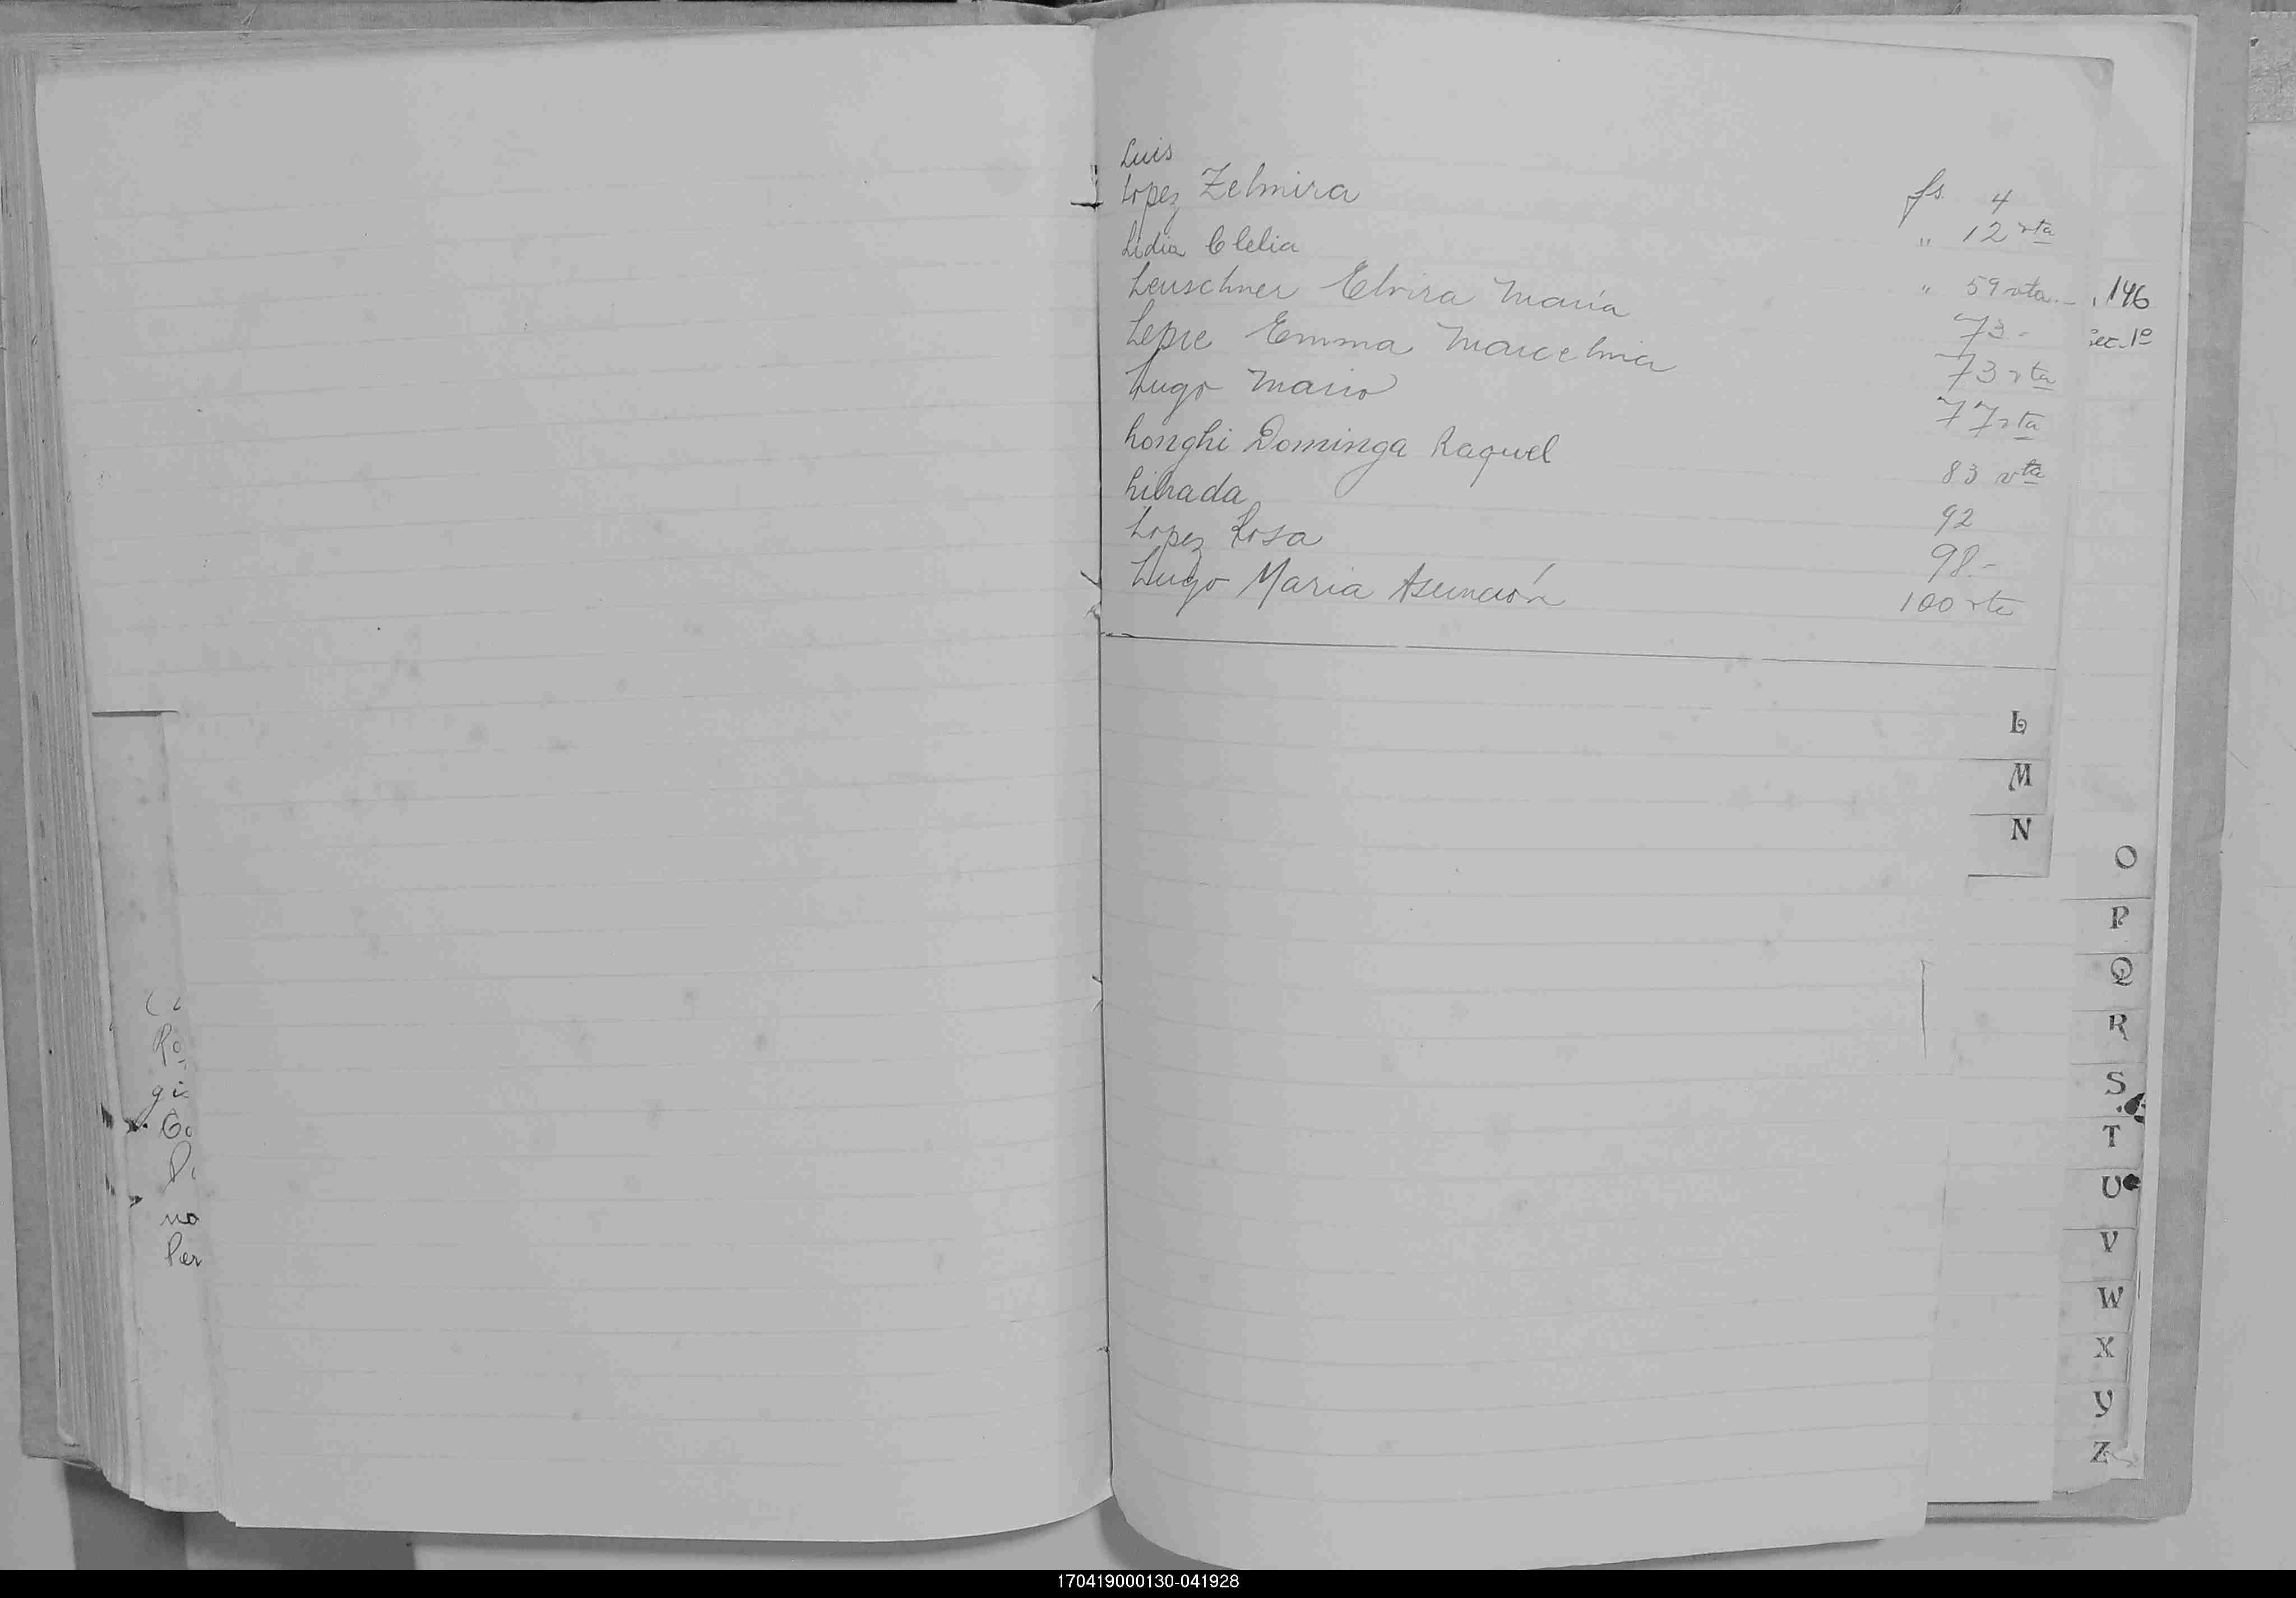 Luis fs. 4
Lopez Zelmira " 12 vta
Lidia Clelia " 59 vta.-
Leuschner Elvira Maria 73.-
Lepre Emma Marcelina 73 vta
Lugo Mario 77 vta
Longhi Dominga Raquel 83 vta
Librada 92
Lopez Rosa 98.-
Lugo Maria Asunción 100 vta
146
sec. 1º
L
M
N
O
P
Q
R
S
T
U
V
W
X
Y
Z
Ro
gi
Go
no
Per
170419000130-041928